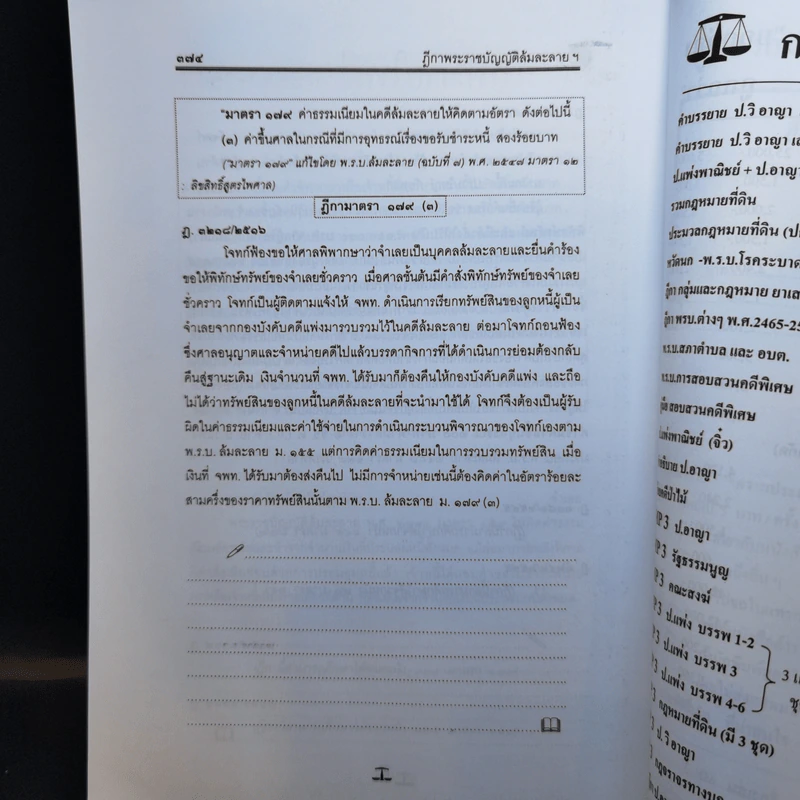 ๓๗๔
ฎีกาพระราชบัญญัติล้มละลาย ฯ
"มาตรา ๑๗๙ ค่าธรรมเนียมในคดีล้มละลายให้คิดตามอัตรา ดังต่อไปนี้
(๓) ค่าขึ้นศาลในกรณีที่มีการอุทธรณ์เรื่องขอรับชำระหนี้ สองร้อยบาท
("มาตรา ๑๗๙" แก้ไขโดย พ.ร.บ.ล้มละลาย (ฉบับที่ ๗) พ.ศ. ๒๕๔๗ มาตรา ๑๒
: ลิขสิทธิ์สูตรไพศาล)
ฎีกามาตรา ๑๗๙ (๓)
ฎ. ๓๒๑๘/๒๕๑๖
โจทก์ฟ้องขอให้ศาลพิพากษาว่าจำเลยเป็นบุคคลล้มละลายและยื่นคำร้อง
ขอให้พิทักษ์ทรัพย์ของจำเลยชั่วคราว เมื่อศาลชั้นต้นมีคำสั่งพิทักษ์ทรัพย์ของจำเลย
ชั่วคราว โจทก์เป็นผู้ติดตามแจ้งให้ จพท. ดำเนินการเรียกทรัพย์สินของลูกหนี้ผู้เป็น
จำเลยจากกองบังคับคดีแพ่งมารวบรวมไว้ในคดีล้มละลาย ต่อมาโจทก์ถอนฟ้อง
ซึ่งศาลอนุญาตและจำหน่ายคดีไปแล้วบรรดากิจการที่ได้ดำเนินการย่อมต้องกลับ
คืนสู่ฐานะเดิม เงินจำนวนที่ จพท. ได้รับมาก็ต้องคืนให้กองบังคับคดีแพ่ง และถือ
ไม่ได้ว่าทรัพย์สินของลูกหนี้ในคดีล้มละลายที่จะนำมาใช้ได้ โจทก์จึงต้องเป็นผู้รับ
ผิดในค่าธรรมเนียมและค่าใช้จ่ายในการดำเนินกระบวนพิจารณาของโจทก์เองตาม
พ.ร.บ. ล้มละลาย ม. ๑๕๕ แต่การคิดค่าธรรมเนียมในการรวบรวมทรัพย์สิน เมื่อ
เงินที่ จพท. ได้รับมาต้องส่งคืนไป ไม่มีการจำหน่ายเช่นนี้ต้องคิดค่าในอัตราร้อยละ
สามครึ่งของราคาทรัพย์สินนั้นตาม พ.ร.บ. ล้มละลาย ม. ๑๗๙ (๓)
คำบรรยาย ป.วิ อาญา
คำบรรยาย ป.วิ อาญา
ป.แพ่งพาณิชย์ + ป.อาญา
รวมกฎหมายที่ดิน
ประมวลกฎหมายที่ดิน
หวัดนก -พ.ร.บ.โรคระบาด
ฎีกา กลุ่มและกฎหมาย
ฎีกา พรบ.ต่างๆ พ.ศ.2465-25
พ.ร.บ.สภาตำบล และ อบต.
พ.ร.บ.การสอบสวนคดีพิเศษ
สอบสวนคดีพิเศษ
แพ่งพาณิชย์ (จิ๋ว)
ป.อาญา
ป่าไม้
P3 ป.อาญา
P3 รัฐธรรมนูญ
P3 คณะสงฆ์
P3 ป.แพ่ง บรรพ 1-2
P3 ป.แพ่ง บรรพ 3
ป.แพ่ง บรรพ 4-6
3
กฎหมายที่ดิน (มี 3 ชุด)
ป.วิ อาญา